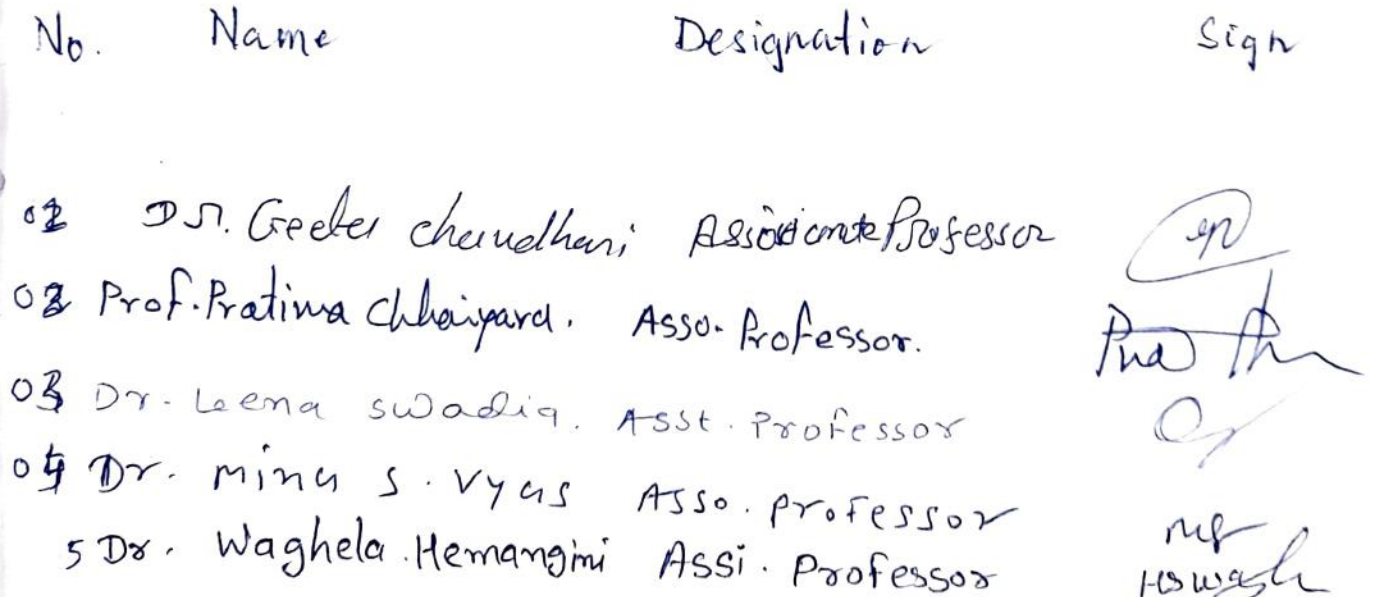 No. Name Designation Sign
01 Dr. Geeta Chaudhari Associate Professor
02 Prof. Pratima Chhaiyara. Asso. Professor.
03 Dr. Leena Swadia. Asst. Professor
04 Dr. Mina S. Vyas Asso. Professor
5 Dr. Waghela Hemangini Assi. Professor